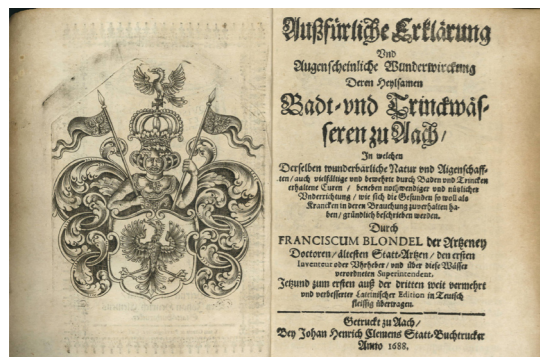 Außfürliche Erklärung
Vnd
Augenscheinliche Wunderwirckung
Deren Heylsamen
Badt- vnd Trinckwäs-
seren zu Aach/
In welchen
Derselben wunderbärliche Natur vnd Aigenschaff-
ten/ auch vielfältige vnd bewehrte durch Baden vnd Trincken
erhaltene Curen / beneben nothwendiger vnd nützlicher
Vnderrichtung / wie sich die Gesunden so woll als
Krancken in deren Brauchung zuverhalten ha-
ben/ gründlich beschrieben werden.
Durch
FRANCISCUM BLONDEL der Artzeney
Doctoren/ ältesten Statt-Artzen / den ersten
Inventeut oder Vhrheber/ vnd über diese Wässer
verordneten Superintendent.
Jetzund zum ersten auß der dritten weit vermehrt
vnd verbesserter Lateinischer Edition in Teutsch
fleissig übertragen.
Getruckt zu Aach/
Bey Johan Henrich Clemens Statt-Buchtrucker
Anno 1688.